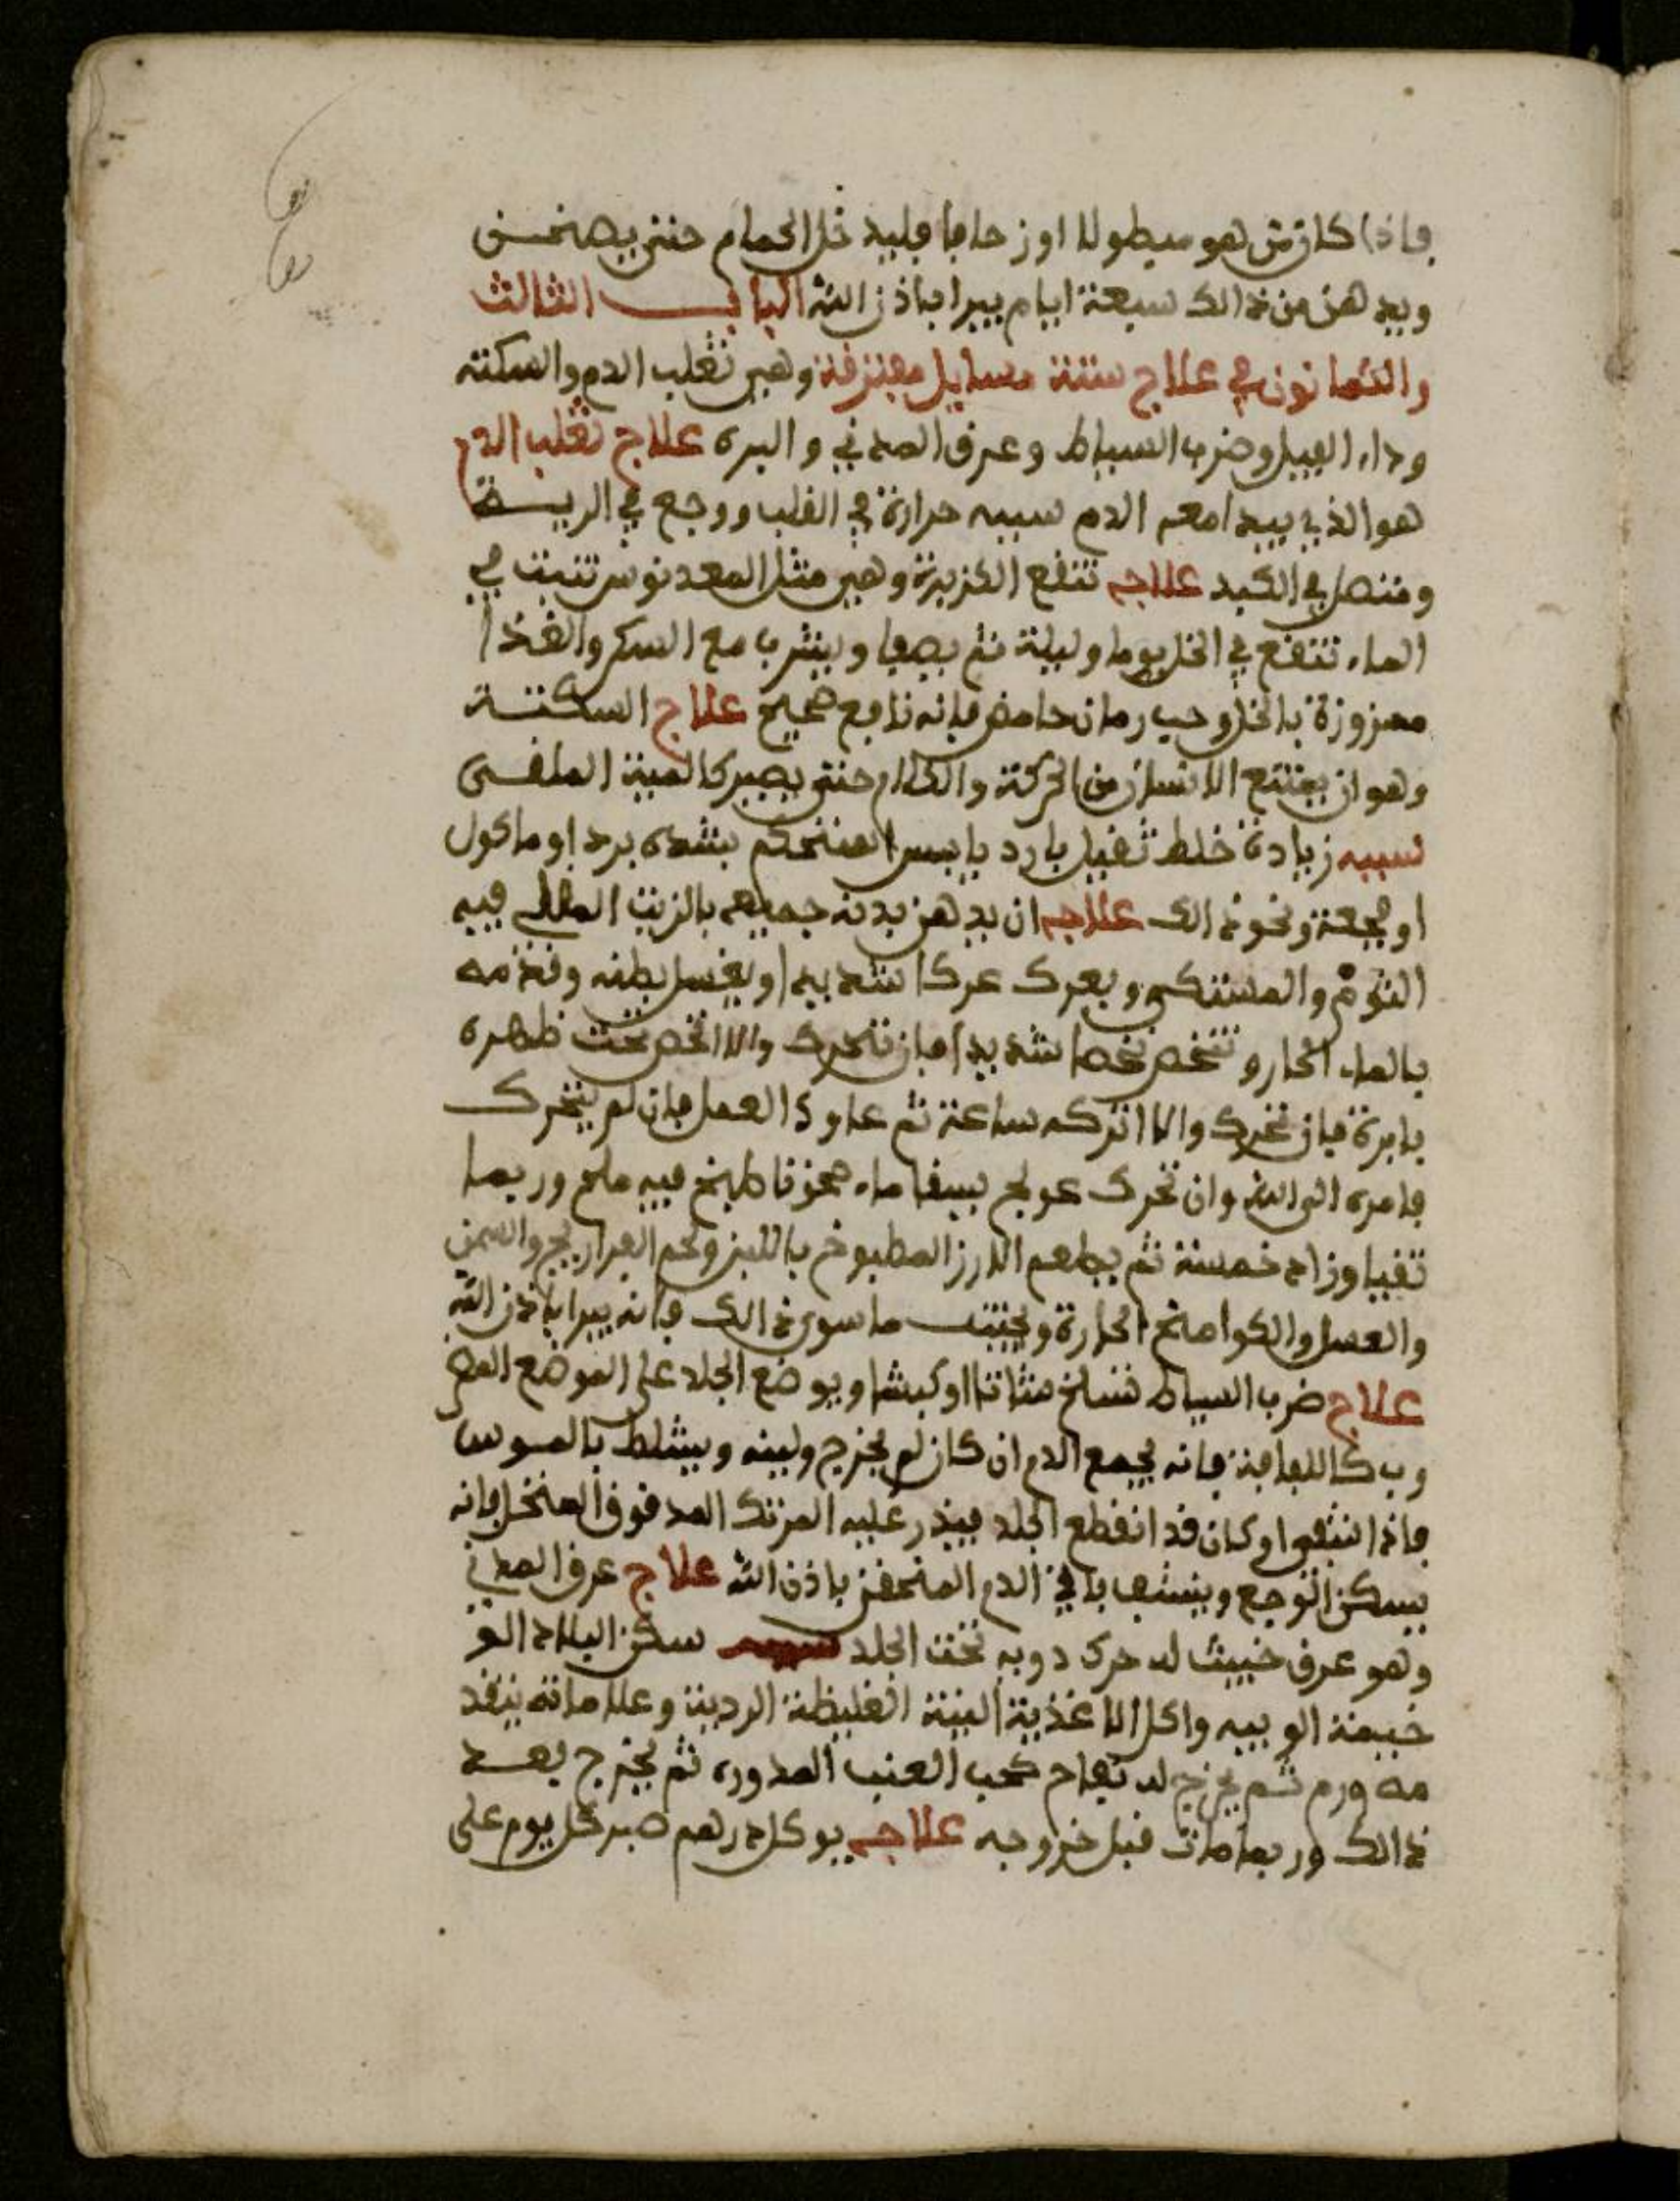 فإذا كان من هو مبطولا او زحافا فليدخل الحمام حتى يصخن
ويدهن من ذالك سبعة ايام يبرا باذن الله الباب الثالث
والثمانون في علاج ستة مسايل مفترقة وهي تغلب الدم والسكتة
وداء الفيل وضرب السياط وعرق المدني والبره علاج تغلب الدم
هو الذي يبدا معه الدم سببه حرارة في القلب ووجع في الرية
في الكبد علاجه تنقع الكزبرة وهي مثل المعدنوس تنبت في
الماء تنقع في الخل يوما وليلة ثم يصفا ويشرب مع السكر والغذا
مزوزة بالخل وحب رمان حامض فإنه نافع صحيح علاج السكتة
وهو ان يمتنع الانسان من الحركة والكلام حتى يصير كالميت الملقى
سببه زيادة خلط ثقيل بارد يابس استحكم بشدة برد او ماكول
او فجعة ونحو ذالك علاجه ان يدهن بدنه جميعه بالزيت المغلى فيه
الثوم والمستكى ويعرك عركا شديدا ويغسل بطنه وقدمه
بالماء الحار وتنخص نخصا شديدا فإن تحرك والا انخص تحت ظهره
بابرة فإن تحرك والا اتركه ساعة ثم عاود العمل فإن لم يتحرك
فامره الى الله وان تحرك عولج يسقا ماء طبخ فيه ملح وربما
تقيا وزاد خمسة ثم يطعم الارز المطبوخ باللبن ولحم الفراريج والسمن
والعسل والكوامخ الحارة ويجتنب ما سوى ذالك فإنه يبرا باذن الله
علاج ضرب السياط تسلخ شاتا او كبشا ويوضع الجلد على الموضع المضر
وب كاللفافة فإنه يجمع الدم ان كان لم يخرج ولينه ويشلط بالموس
فإذا انتفى او كان قد انقطع الجلد فيذر عليه المرتك المدقوق المنخل فإنه
يسكن الوجع وينشف باقي الدم المنحقن باذن الله علاج عرق المدني
وهو عرق خبيث له حركة دوبه تحت الجلد سببه سكن البلاد الو
خيمة الوبيه واكل الاغذية النية الغليظة الردية وعلاماته يتقد
مه ورم ثم يخرج له نفاخ كحب العنب المدوره ثم يخرج بعد
ذالك وربما مات قبل خروجه علاجه يوكل درهم صبر كل يوم على